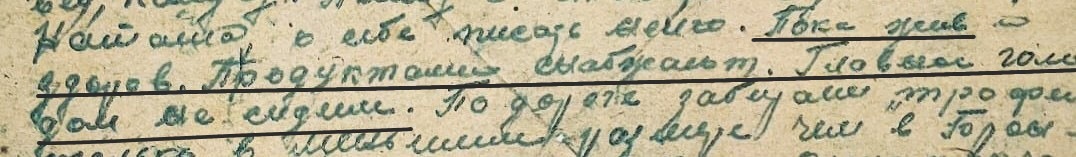 Наташа, о себе писать нечего. Пока жив и
здоров. Продуктами снабжают. Главное голо
дом не сидим. По дороге забирали трофеи
только в меньшем размере чем в Горо